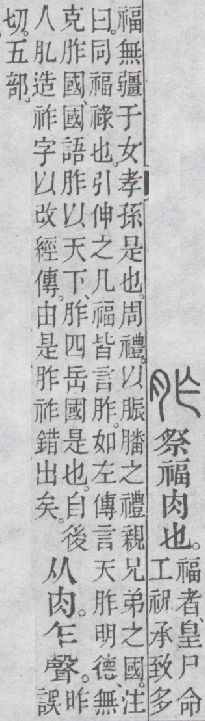 胙祭福肉也。福者、皇尸命
工祝承致多
福無疆于女孝孫是也。周禮。以脤膰之禮親兄弟之國。注
曰。同福祿也。引伸之凡福皆言胙。如左傳言天胙明德、無
克胙國、國語胙以天下、胙四岳國是也。自後
人肊造祚字以改經傳。由是胙祚錯出矣。
从肉。乍聲。昨
誤
切。五部。